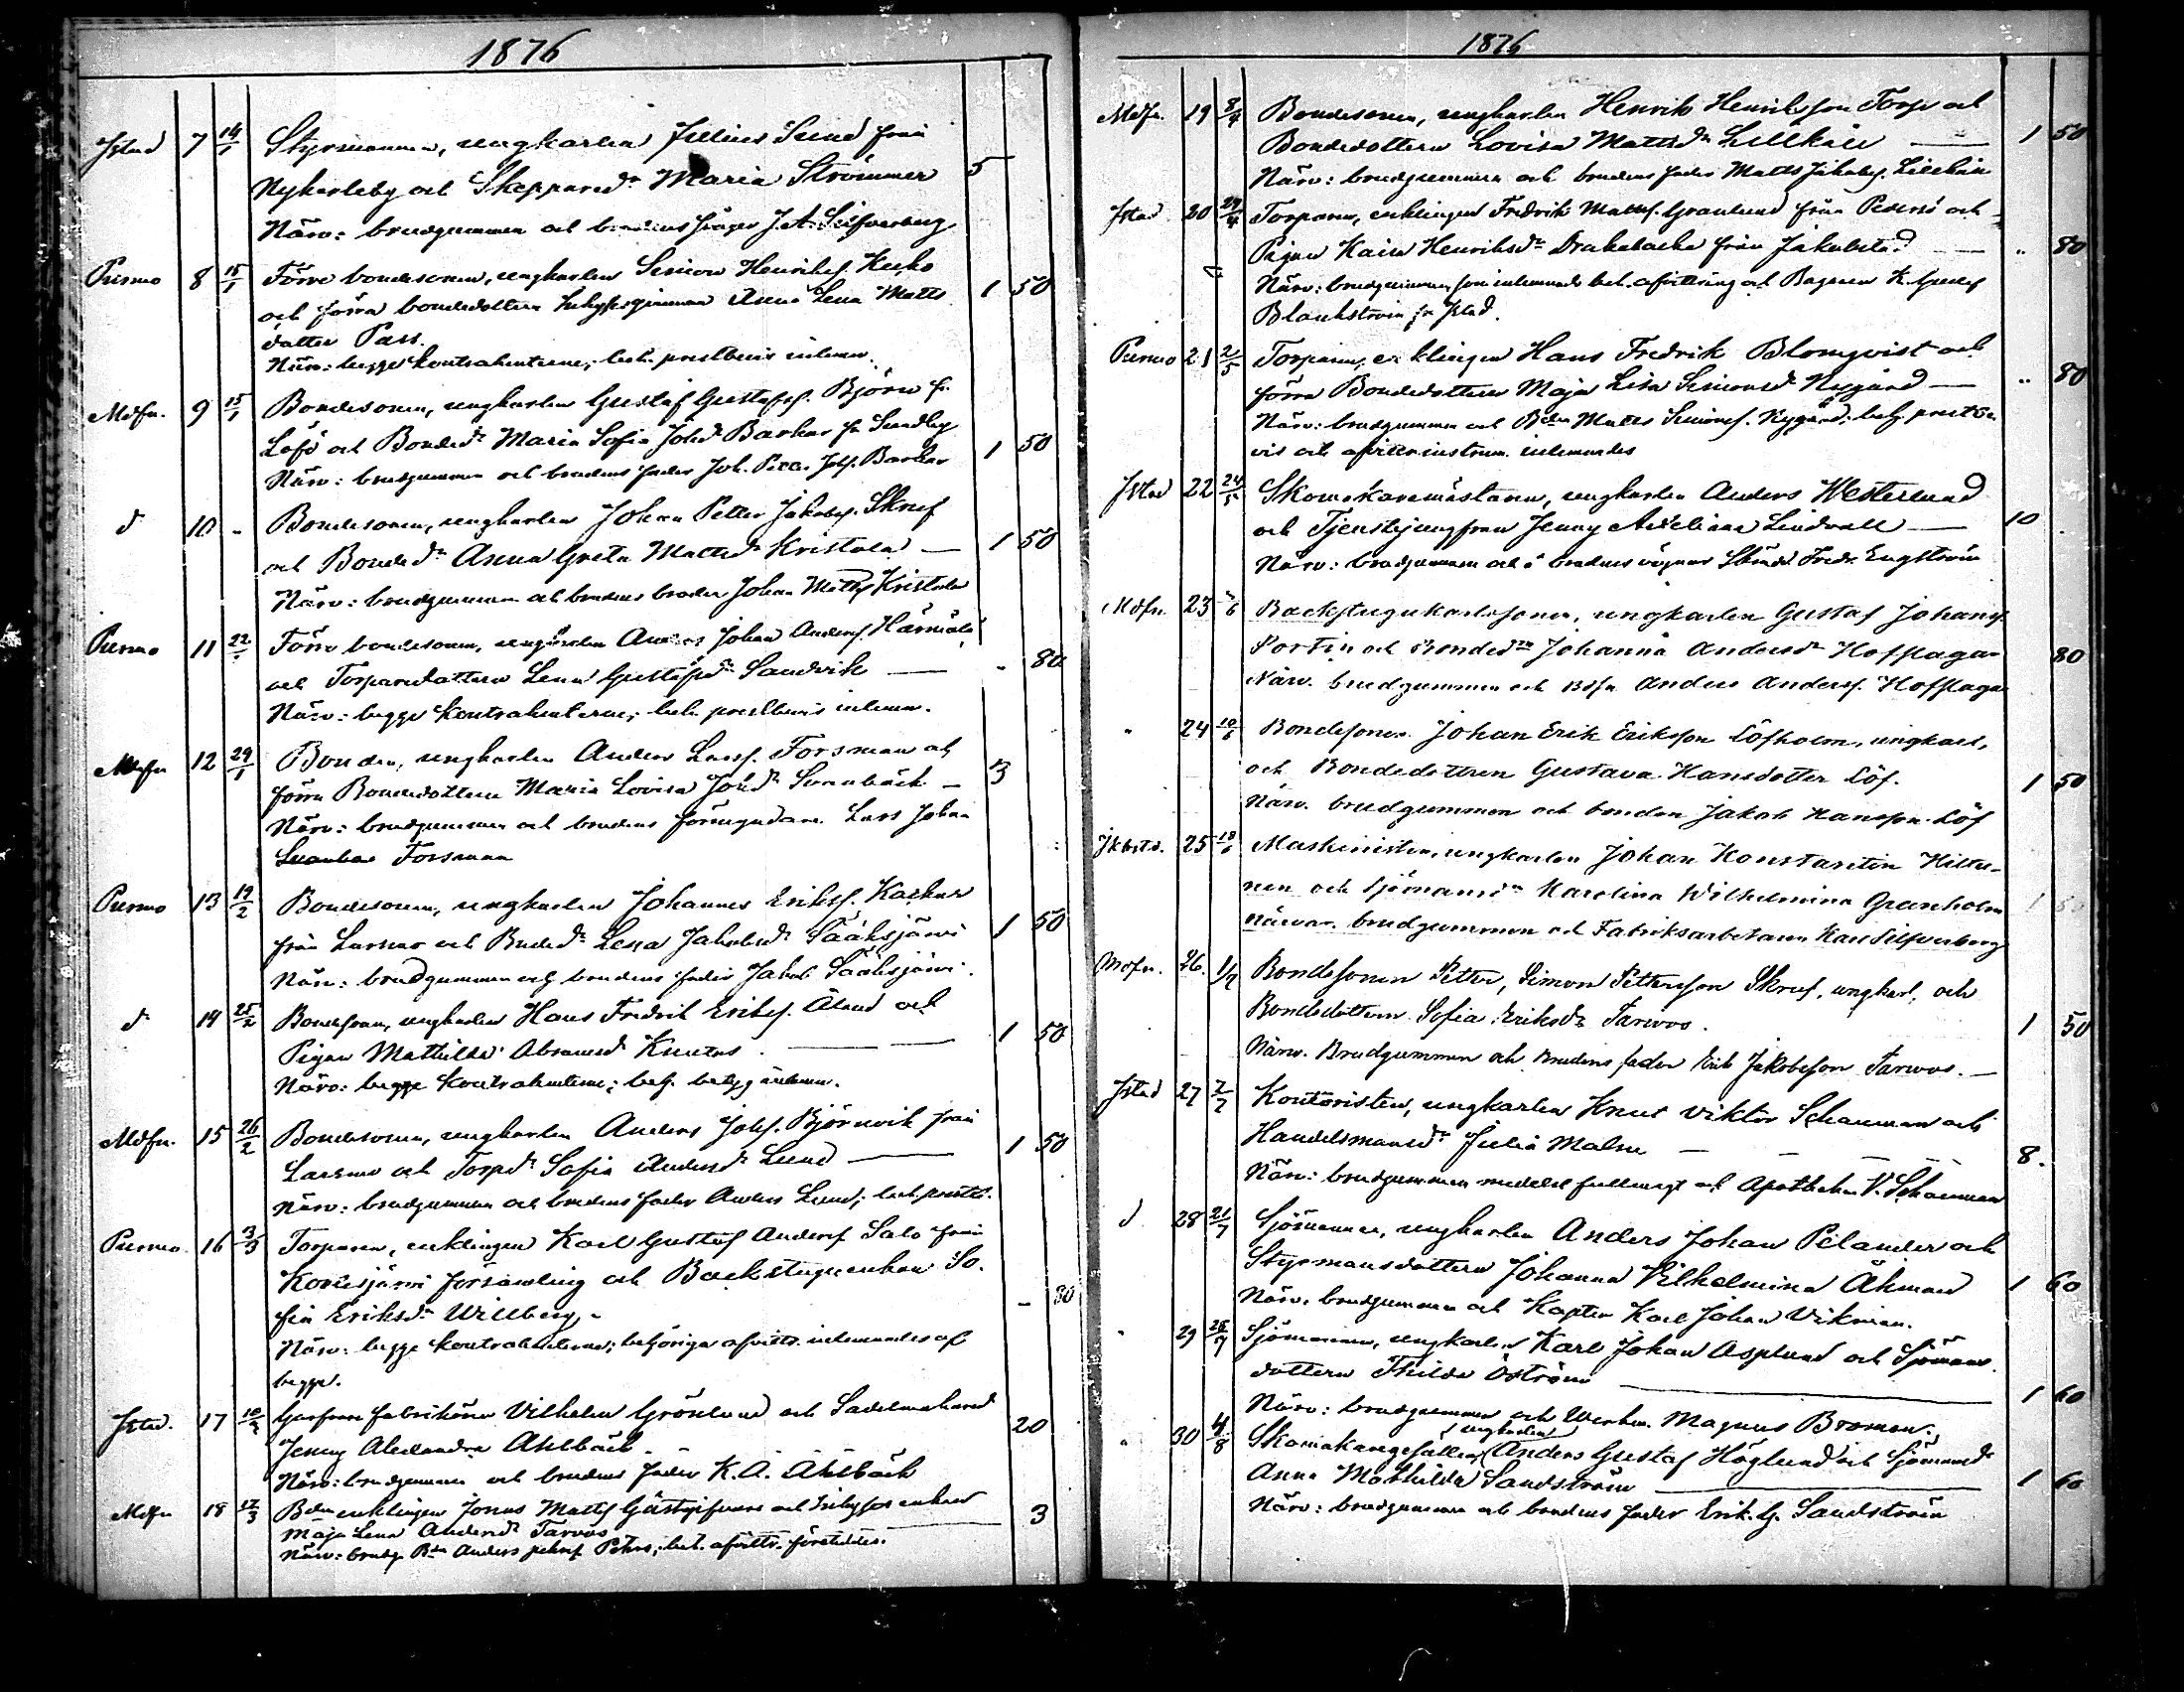 1876
Jstad 7 14/1 Styrmannen, ungkarlen Julius Sund från
Nykarleby och Skeppared:r Maria Strömmer 5
Närv: brudgummen och brudens J. A. Silfverberg
Purmo 8 15/1 Förre bondesonen, ungkarlen Simon Henriksf.
och förra bondedottern Anna Lena Matts 1 50
dotter Pass.
Närv: begge kontrahenterne; beh. prestbevis inlemn.
Mdfn. 9 15/1 Bondesonen, ungkarlen Gustaf Gustafsf. Björn fr.
Löfö och Bonded:r Maria Sofia Johsd:r Barkar fr Sundby 1 50
Närv: brudgummen och brudens fader Joh. Johsf. Barkar
d 10 - Bondesonen, ungkarlen Johan Petter Jakobsf. Skruf
och Bonded:r Anna Greta Mattsd:r Kristola — 1 50
Närv: brudgummen och brudens broder Johan Mattsf Kristola
Purmo 11 22/1 Förre bondesonen, ungkarlen Anders Johan Andersf.
och Torparedottern Lena Gustafsd:r Sandvik — - 80
Närv: begge kontrahenterne; beh. prestbevis inlemn.
Mdfn 12 29/1 Bonden, ungkarlen Anders Larsf. Forsman och
förra Bondedottern Maria Lovisa Johsd:r Svanbäck — 3
Närv: brudgummen och brudens förmyndare Lars Johan
Forsman
Purmo 13 19/2 Bondesonen, ungkarlen Johannes Eriksf. Kackur
från Larsmo och Bonded:r Lena Jakobsd:r Sääksjärvi 1 50
Närv: brudgummen och brudens fader Jakob Sääksjärvi.
d:o 14 25/2 Bondesonen, ungkarlen Hans Fredrik Eriksf. Åland och
Pigan Mathilda Abramsd:r Knutas. — 1 50
Närv: begge kontrahenterne; beh. betyg inlemn.
Mdfn. 15 26/2 Bondesonen, ungkarlen Anders Johsf. Björnvik från
Larsmo och Torpd:r Sofia Andersd:r Lund — 1 50
Närv: brudgummen och brudens fader Anders Lund; beh. prestb.
Purmo 16 3/3 Torparen, enklingen Karl Gustaf Andersf Salo från
församling och Backstuguenkan So-
fia Eriksd:r Willberg,- - 80
Närv: begge kontrahenterne; behöriga afvittr. inlemnades af
begge.
Jstad. 17 10/3 Garfvare fabrikören Vilhelm Grönlund och Sadelmakared 20
Jenny Alexandra Ahlbäck.
Närv: brudgummen och brudens fader K. A. Ahlbäck
Mdfn 18 12/3 B:den enklingen Jonas Mattsf Gästgifvars och Inhyses enkan
Maja Lena Andersd:r Tarvos — 3
Närv: brudg. B:den Anders Petrus; beh. afvittr. företeddes.
1876
Mdfn. 19 8/4 Bondesonen, ungkarlen Henrik Henriksson Forss och
Bondedottern Lovisa Mattsd:r Lillkåll — 1 50
Närv: brudgummen och brudens fader Matts Jakobsf. Lillkåll
Jstad 20 29/4 Torparen, enklingen Fredrik Mattsf. Granlund från Pedersö och
Pigan Kaisa Henriksd:r Drakebacka från Jakobstad — " 80
Närv: brudgummen, som inlemnade beh. afvittring och Bagaren K. Gustaf
Blankström fr Jstad.
Purmo 21 2/5 Torparen, enklingen Hans Fredrik Blomqvist och
förra Bondedottern Maja Lisa Simonsd:r Nygård — " 80
Närv: brudgummen och B:den Matts Simonsf. Nygård; beh. prestbe-
vis och afvittr.instrum. inlemnades
Jstad 22 24/5 Skomakaremästaren, ungkarlen Anders Westerlund
och Tjenstejungfrun Jenny Adeliana Lindvall — 10
Närv: brudgummen och å brudens vägnar Fredr. Engström
Mdfn. 23 /6 Backstugukarlssonen, ungkarlen Gustaf Johansf.
Portin och Bonded:rn Johanna Andersd:r Hofslagar 80
Närv. brudgummen och Bdsn Anders Andersf. Hofslagar
" 24 10/6 Bondesonen Johan Erik Eriksson Löfholm, ungkarl,
och Bondedottren Gustava Hansdotter Löf. 1 50
Närv. brudgummen och bonden Jakob Hansson Löf
Jkbstd. 25 18/6 Maskinisten, ungkarlen Johan Konstantin Hiltu-
nen och Sjömansd:r Karolina Wilhelmina Granholm 1
närvar. brudgummen och Fabriksarbetaren Karl Silfverberg
Mdfn. 26. 1/7 Bondesonen Petter, Simon Pettersson Skruf, ungkarl, och
Bondedottern Sofia Eriksd:r Tarvos. 1 50
Närv. Brudgummen och Brudens fader Erik Jakobsson Tarvos. —
Jstad 27 2/7 Kontoristen, ungkarlen Knut Viktor Schauman och
Handelsmansd:r Julia Malm — — — — 8.
Närv: brudgummen medelst fullmagt och Apothek. V. Schauman
d 28 21/7 Sjömannen, ungkarlen Anders Johan Pelander och
Styrmansdottern Johanna Vilhelmina Åhman 1 60
Närv. brudgummen och Kapten Karl Johan Vikman.
" 29 28/7 Sjömannen, ungkarlen Karl Johan Asplund och Sjömans
dottern Thilda Öström — 1 60
Närv: brudgummen och Werkm. Magnus Broman.
" 30 4/8 Skomakaregesällen, ungkarlen Anders Gustaf Höglund och Sjömansd:r
Anna Mathilda Sandström — 1 60
Närv: brudgummen och brudens fader Erik G. Sandström